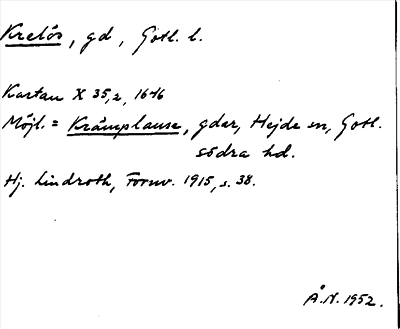 Kretös, gd, Gotl. l.
Kartan X 35,2, 1646
Möjl. = Krämplause, gdar, Hejde sn, Gotl.
södra hd.
Hj. Lindroth, Fornv. 1915, s. 38.
Å.N. 1952.